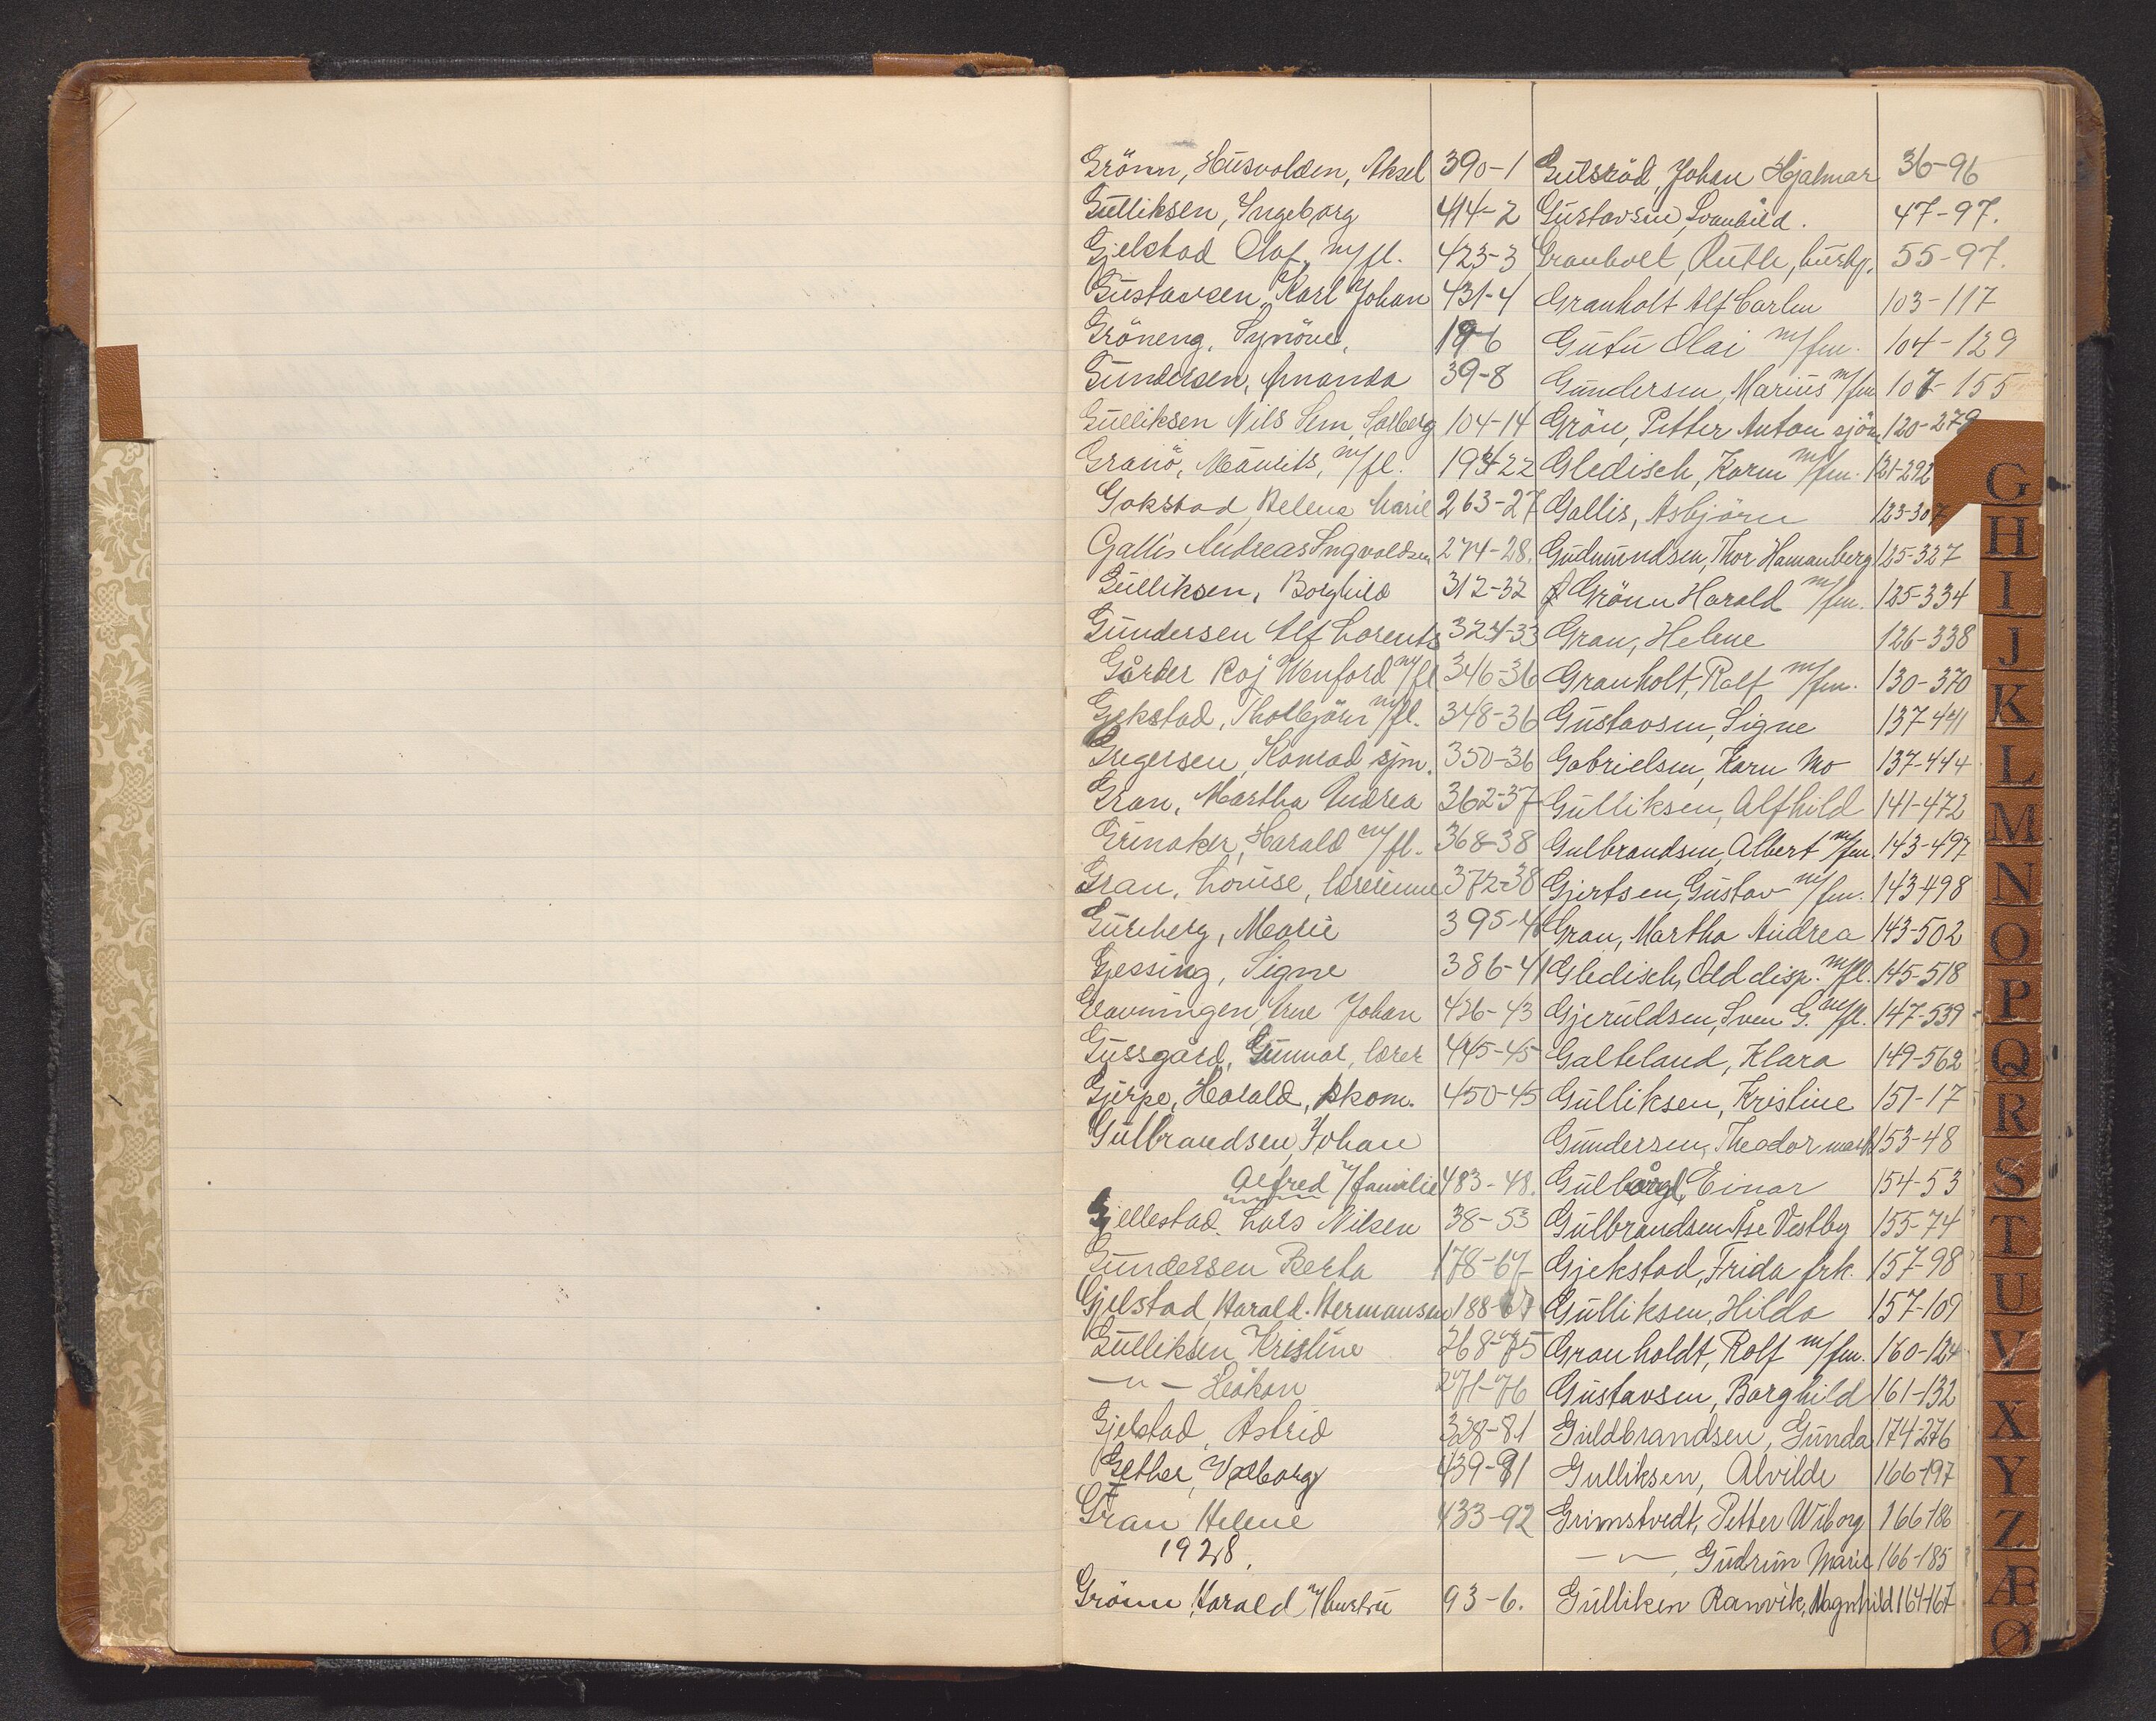 Grönn, Husvolden, Aksel 390-1
Gulliksen, Ingeborg 414-2
Gjelstad Olaf m/fl. 423-3
Gustavsen, Karl Johan 431-4
Gröneng, Synöve, 19-6
Gundersen, Amanda 39-8
Gulliksen Nils Sem, Solberg 104-14
Granö, Mauritz, m/fl. 194-22
Gokstad, Helena Marie 263-27
Gallis Andreas Ingvoldsen 274-28.
Gulliksen, Borghild 312-32
Gundersen Alf Lorents 324-33
Gårder Roj Wenford m/fl 346-36
Gjekstad, Thorbjörn m/fl. 348-36
Gregersen, Konrad sjm. 350-36
Gran, Martha Andrea 362-37
Grinaker, Harald m/fl. 368-38
Gran, Louise, lærerinne 372-38
Gureberg, Marie 395-41
Gjessing, Signe 386-41
Glavningen Arne Johan 426-43
Gussgård, Gunnar, lærer 445-45
Gjerpe, Harald, skom. 450-45
Gulbrandsen, Johan
Alfred m/familie 483-48.
Gjellestad. Lars Nilsen 38-53
Gundersen Berta 178-67
Gjelstad, Harald. Hermansen 188-67
Gulliksen Kristine 268-75
—"— Håkon 271-76
Gjelstad, Astrid 328-81
Gether, Valborg 439-91
Gran Helene 433-92
1928.
Grönn Harald m/hustru 93-6.
Gulsröd, Johan Hjalmar 36-96
Gustavsen, Svanhild. 47-97.
Granholt, Ruth, hushj. 55-97.
Granholt Alf Carlen 103-117
Gutu Olai m/fm. 104-129
Gundersen, Marius m/fm 107-155
Grön, Petter Anton sjöm. 120-279
Gledisch, Karen m/fm. 121-292
Gallis, Asbjörn 123-307
Gudmundsen, Thor Hamanberg 125-327
Grönn Harald m/fm. 125-334
Gran, Helene 126-338
Granholt, Rolf m/fm. 130-370
Gustavsen, Signe 137-441
Gabrielsen, Karen Mo 137-444
Gulliksen, Alfhild 141-472
Gulbrandsen, Albert m/fm. 143-497
Gjertsen, Gustav m/fm. 143-498
Gran, Martha Andrea 143-502
Gledisch, Odd disp. m/fl. 145-518
Gjeruldsen, Sven G. m/fl. 147-539
Galteland, Klara 149-562
Gulliksen, Kristine 151-17
Gundersen, Theodor mask 153-48
Einar 154-53
Gulbrandsen Åse Vestby 155-74
Gjekstad, Frida frk. 157-98
Gulliksen, Hilda 157-109
Granholdt, Rolf m/fm. 160-124
Gustavsen, Borghild 161-132
Guldbrandsen, Gunda 174-276
Gulliksen, Alvilde 166-197
Grimstvedt, Petter Wiborg 166-186
—"—, Gudrun Marie 166-185
Gulliken Ranvik, Magnhild 164-167
G
H
I
J
K
L
M
N
O
P
Q
R
S
T
U
V
X
Y
Z
Æ
Ø